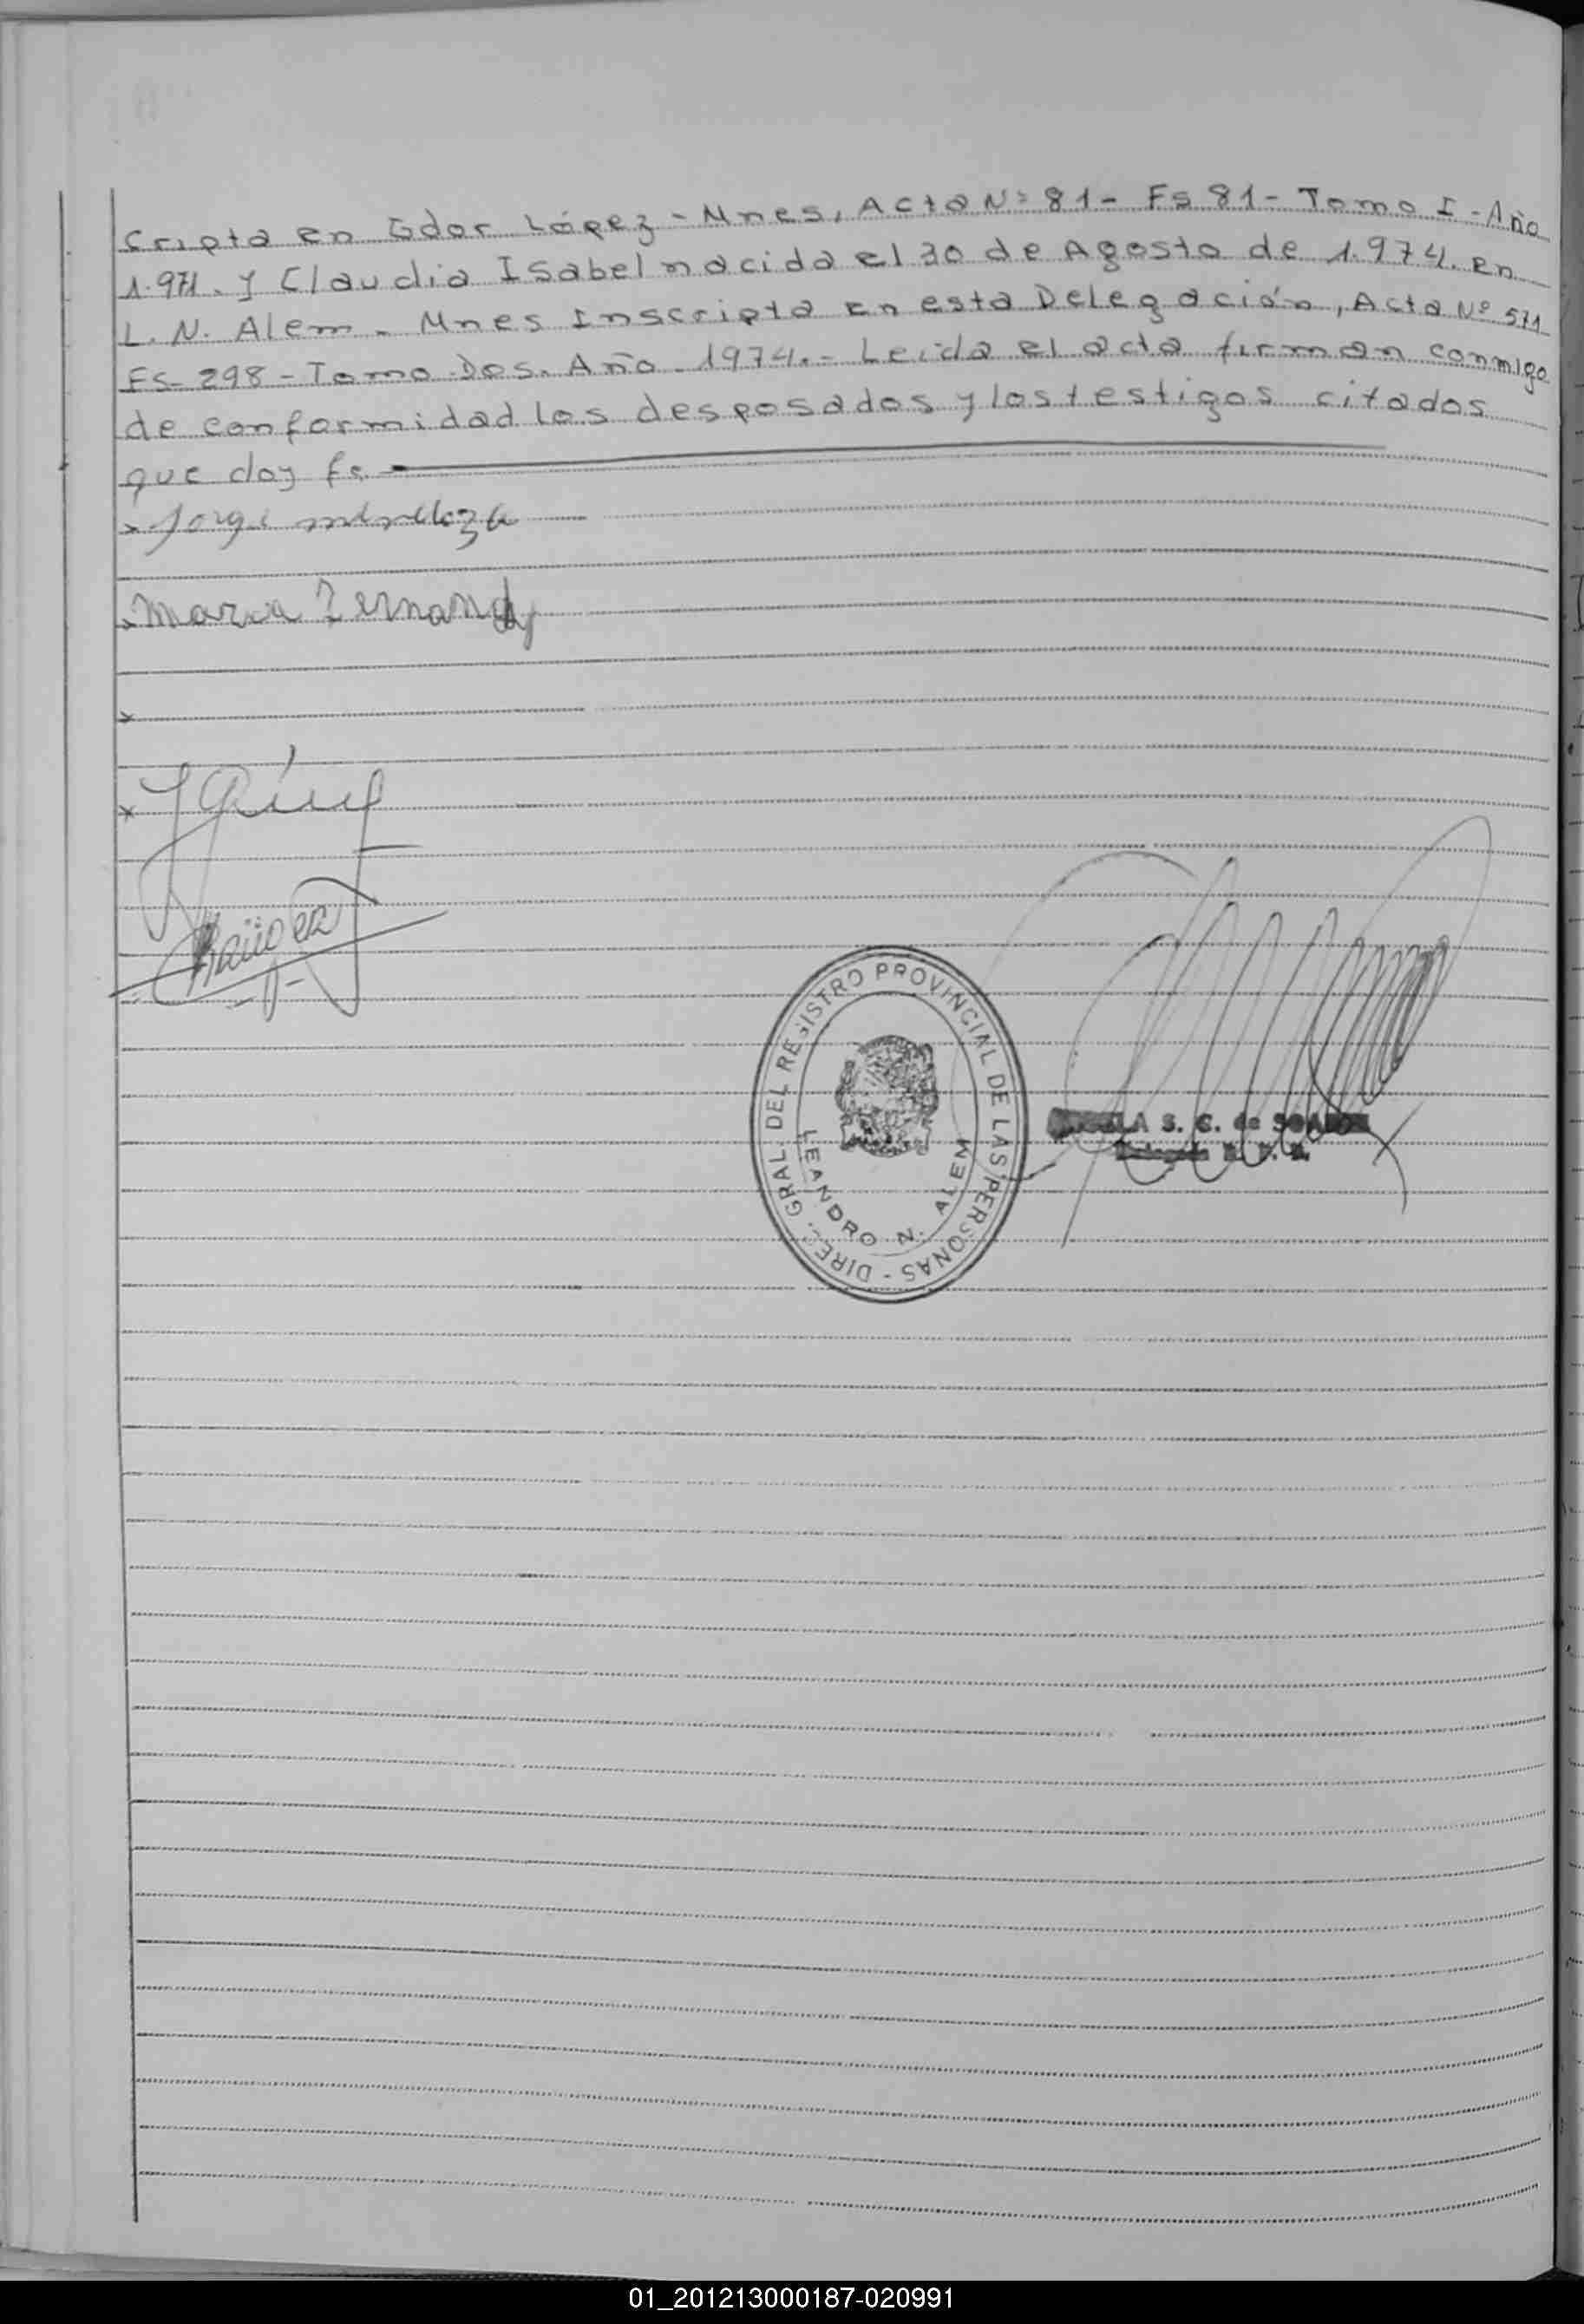 cripta en Gdor López - Mnes, Acta Nº 81 - Fs 81 - Tomo I - Año
1.971. y Claudia Isabel nacida el 30 de Agosto de 1.974. en
L. N. Alem - Mnes Inscripta en esta Delegación, Acta Nº 571
Fs- 298 - Tomo Dos. Año 1974.- Leída el acta firman conmigo
de conformidad los desposados y los testigos citados
que doy fe.
Jorge
Maria
DIREC. GRAL. DEL REGISTRO PROVINCIAL DE LAS PERSONAS -
LEANDRO N. ALEM
S. C. de
01_201213000187-020991